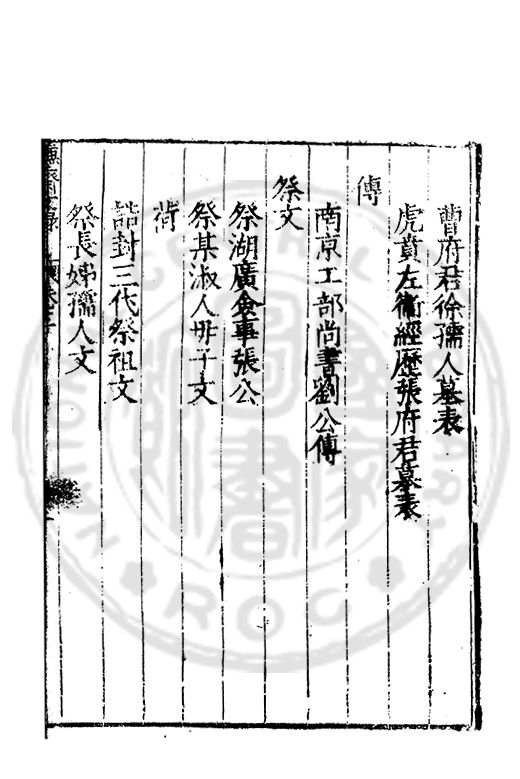 曹府君徐孺人墓表
虎賁左衛經歷張府君墓表
傳
南京工部尚書劉公傳
祭文
祭湖廣僉事張公
祭某淑人毋子文
誥封三代祭祖文
祭長姊孺人文